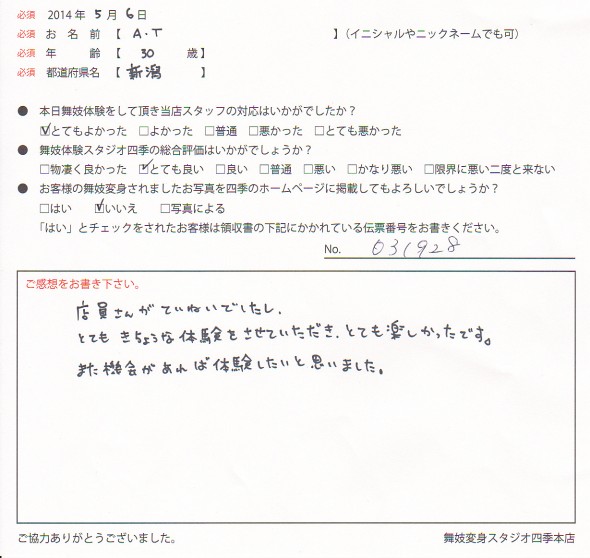 必須 2014年 5月 6日
必須 お名前【 A.T 】(イニシャルやニックネームでも可)
必須 年齢【 30 歳】
必須 都道府県名【 新潟 】
● 本日舞妓体験をして頂き当店スタッフの対応はいかがでしたか?
☑とてもよかった □よかった □普通 □悪かった □とても悪かった
● 舞妓体験スタジオ四季の総合評価はいかがでしょうか?
□物凄く良かった ☑とても良い □良い □普通 □悪い □かなり悪い □限界に悪い二度と来ない
● お客様の舞妓変身されましたお写真を四季のホームページに掲載してもよろしいでしょうか?
□はい ☑いいえ □写真による
「はい」とチェックをされたお客様は領収書の下記にかかれている伝票番号をお書きください。
No. 031928
ご感想をお書き下さい。
店員さんがていねいでしたし、
とてもきちょうな体験をさせていただき、とても楽しかったです。
また機会があれば体験したいと思いました。
ご協力ありがとうございました。
舞妓変身スタジオ四季本店